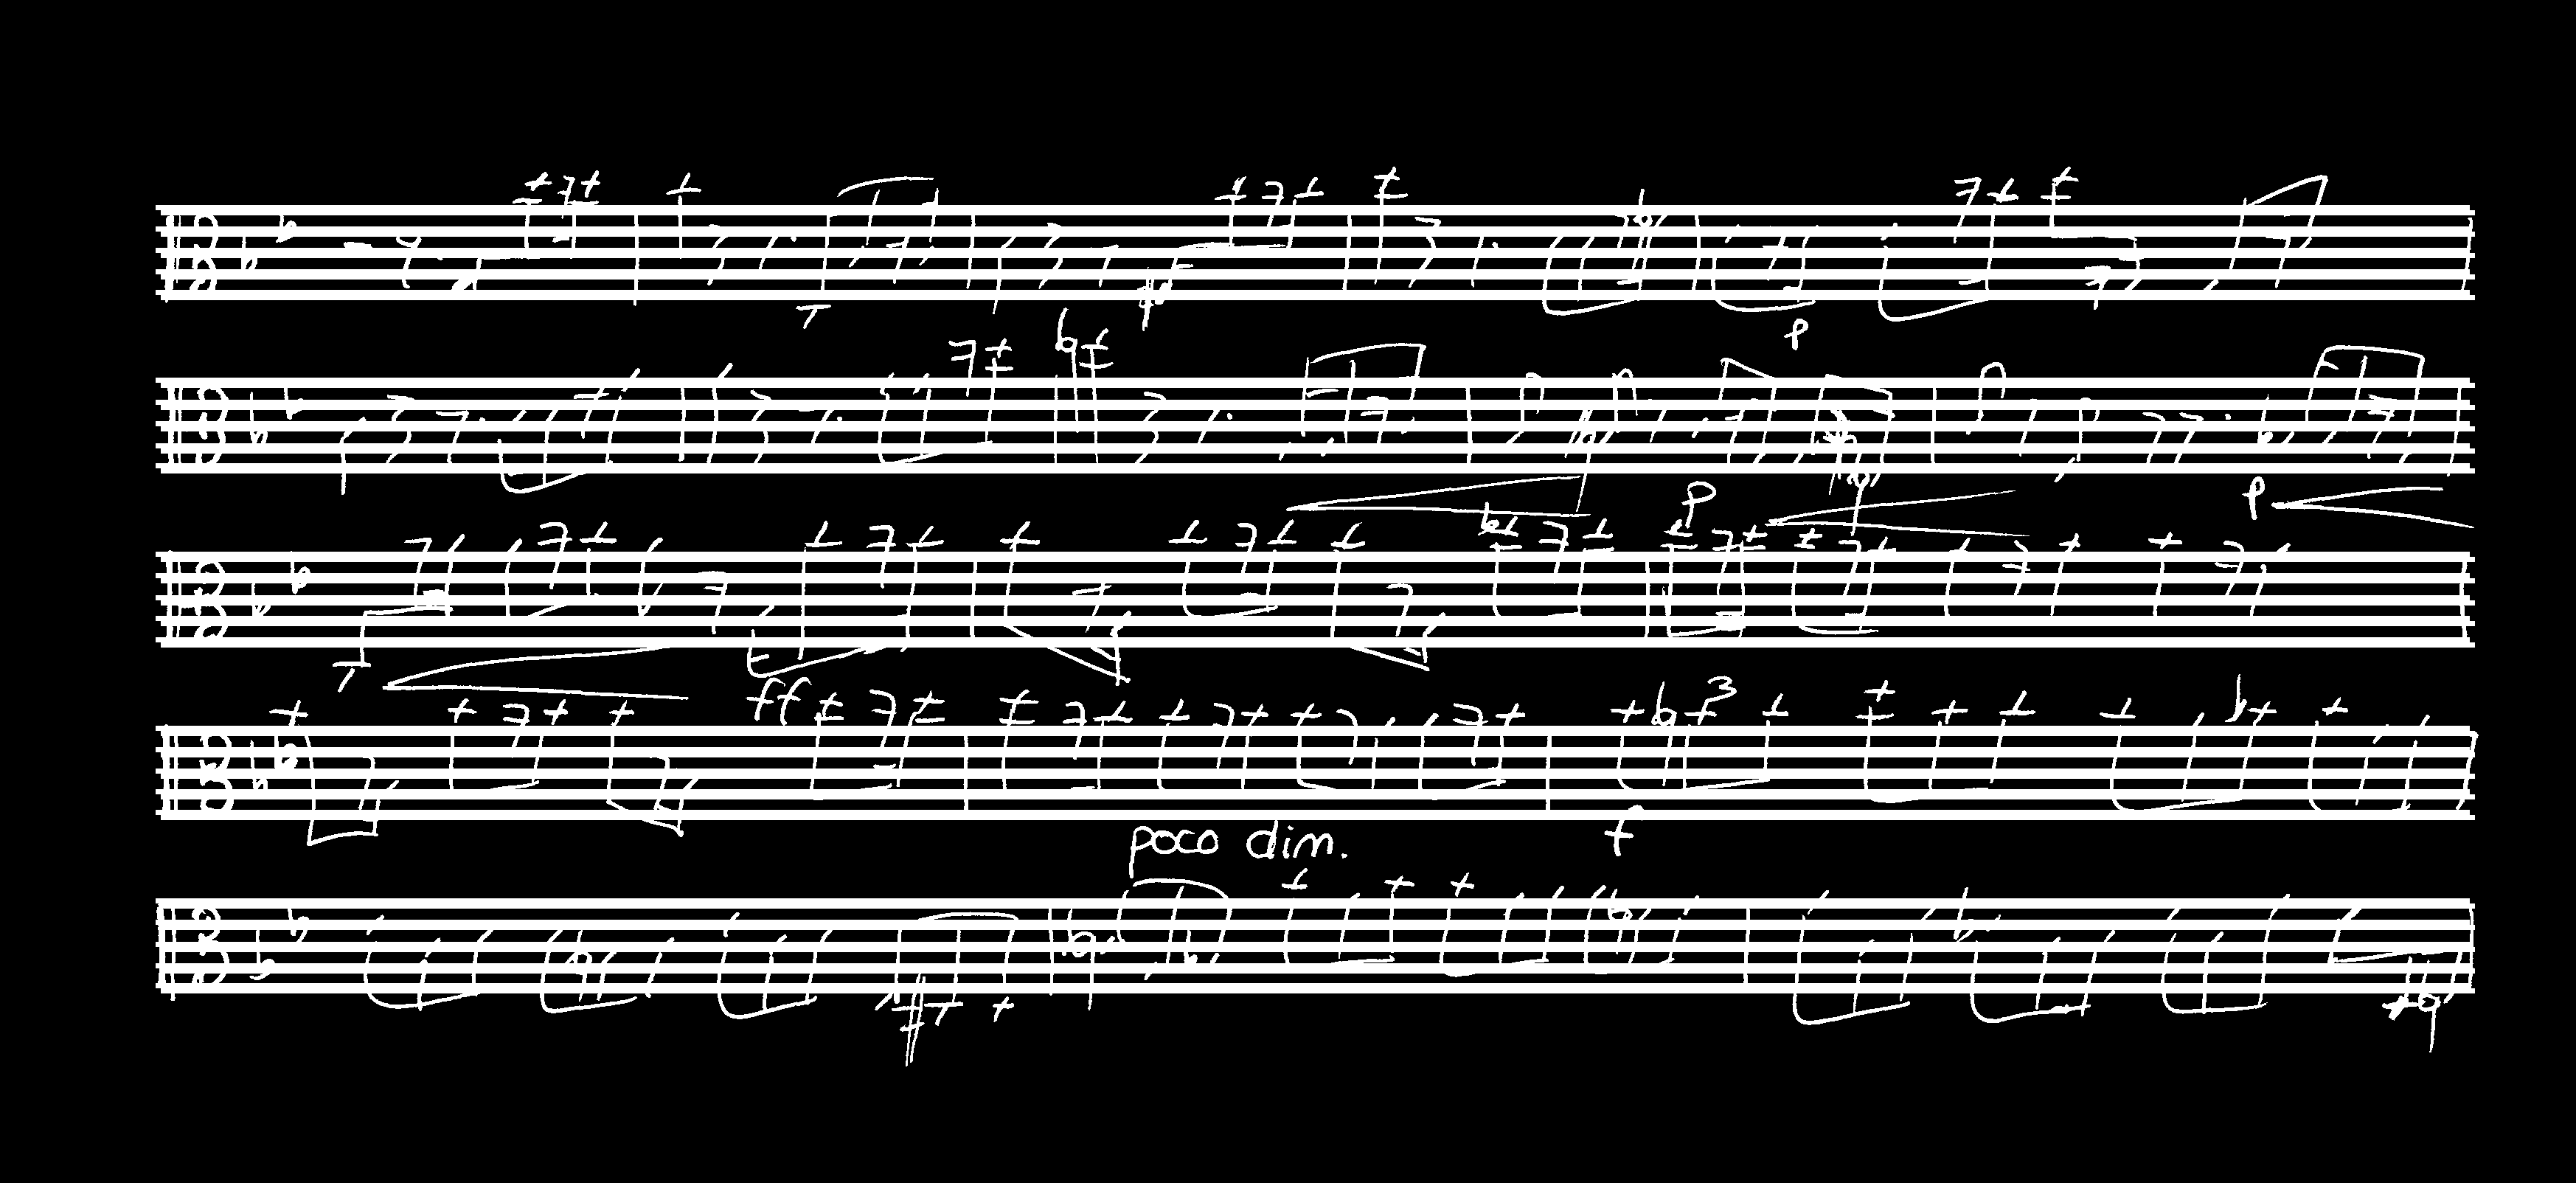 p
p
p
ff
3
poco dim.
f